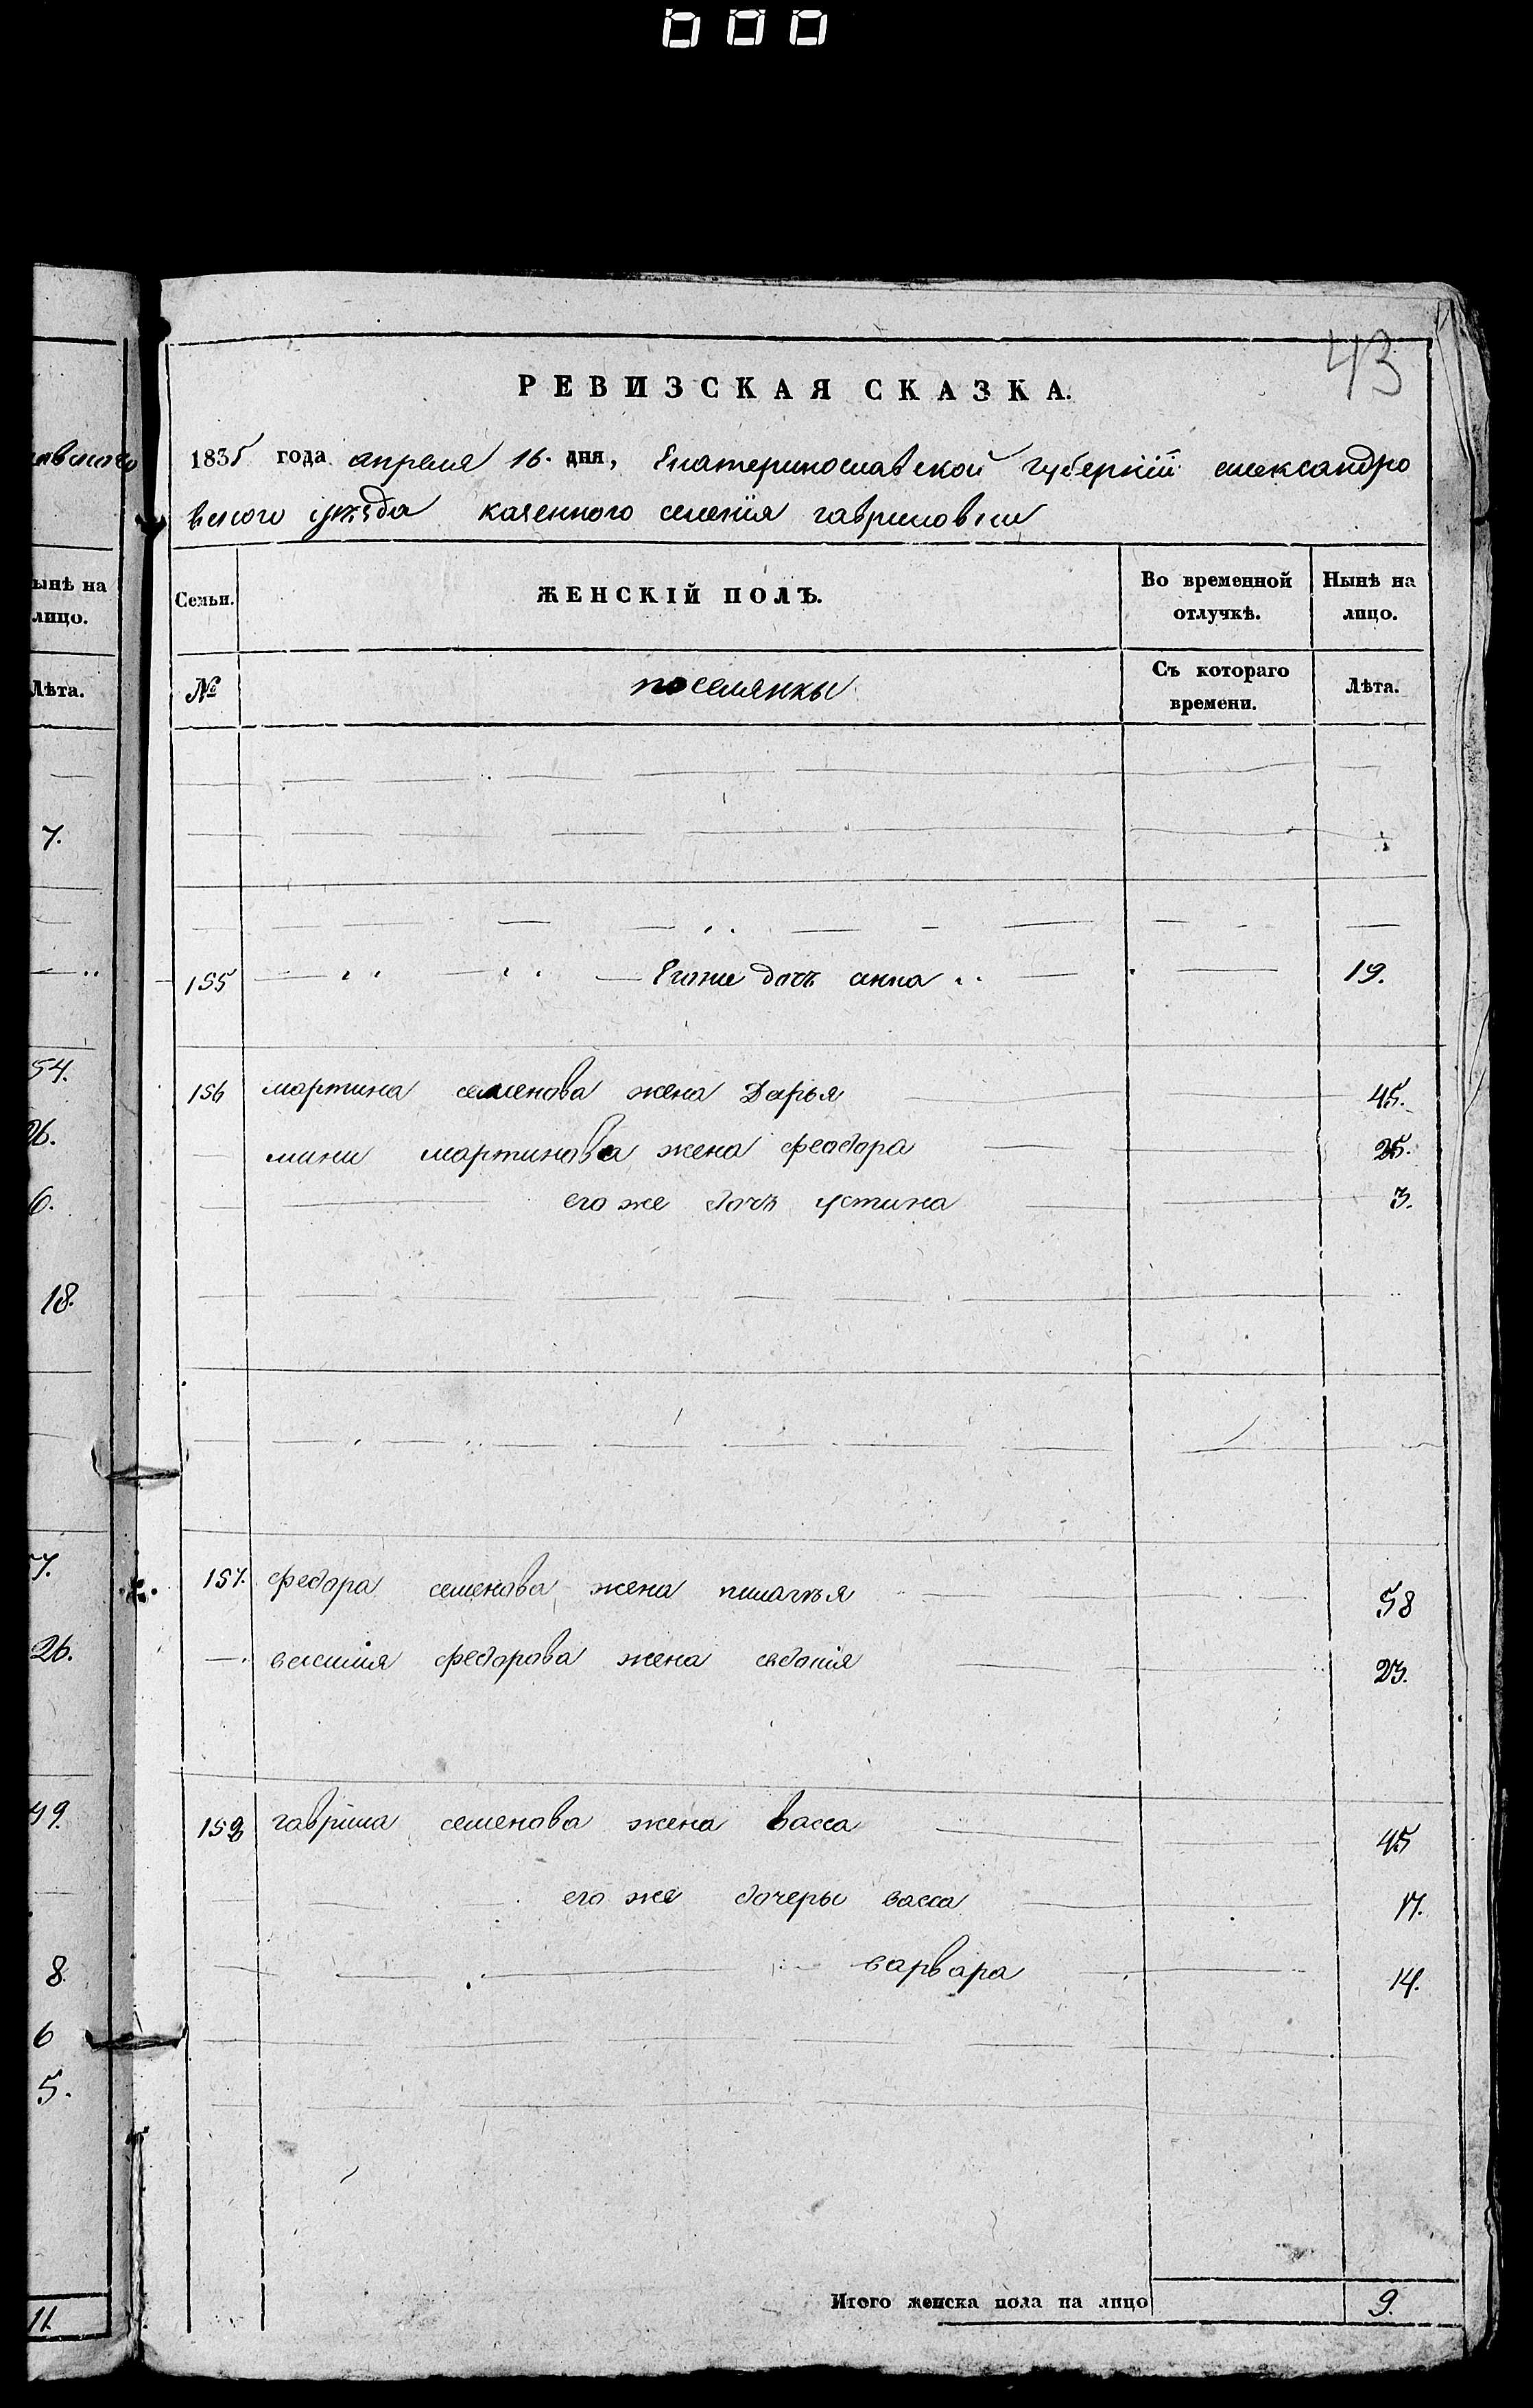 43
РЕВИЗСКАЯ СКАЗКА.
1835 года апреля 16. дня, Екатеринославской губернїи александро
вского уѣзда казенного селенїя гавриловки
Семьи. ЖЕНСКІЙ ПОЛЪ. Во временной отлучкѣ. Нынѣ на лицо.
№ поселянки Съ котораго времени. Лѣта.
155 Егоже дочъ анна 19.
156 мартина семенова жена Дарья 45.
мартинова жена феодора 25.
его же дочъ устина 3.
157. федора семенова жена пелагѣя 58
федорова жена евдокія 23.
158 гаврила семенова жена васса 45
его же дочеры васса 17.
варвара 14.
Итого женска пола на лицо 9.
ынѣ на
лицо.
Лѣта.
7.
54.
26.
6.
18.
7.
26.
49.
8.
6
5.
11.